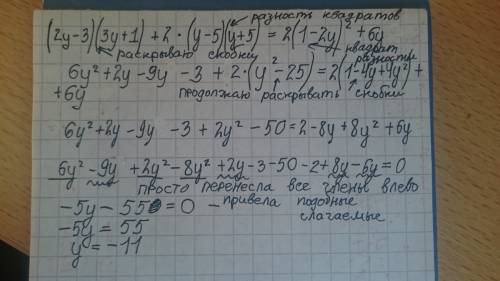 разность квадратов
(2y-3)(3y+1)+2·(y-5)(y+5)=2(1-2y)²+6y
раскрываю скобки
квадрат разности
6y²+2y-9y -3+2·(y²-25)=2(1-4y+4y²)+
+6y
продолжаю раскрывать скобки
6y²+2y-9y -3+2y²-50=2-8y+8y²+6y
6y²-9y +2y²-8y²+2y-3-50-2+8y-6y=0
просто перенесла все члены влево
-5y-55=0 - привела подобные
слагаемые
-5y=55
y=-11